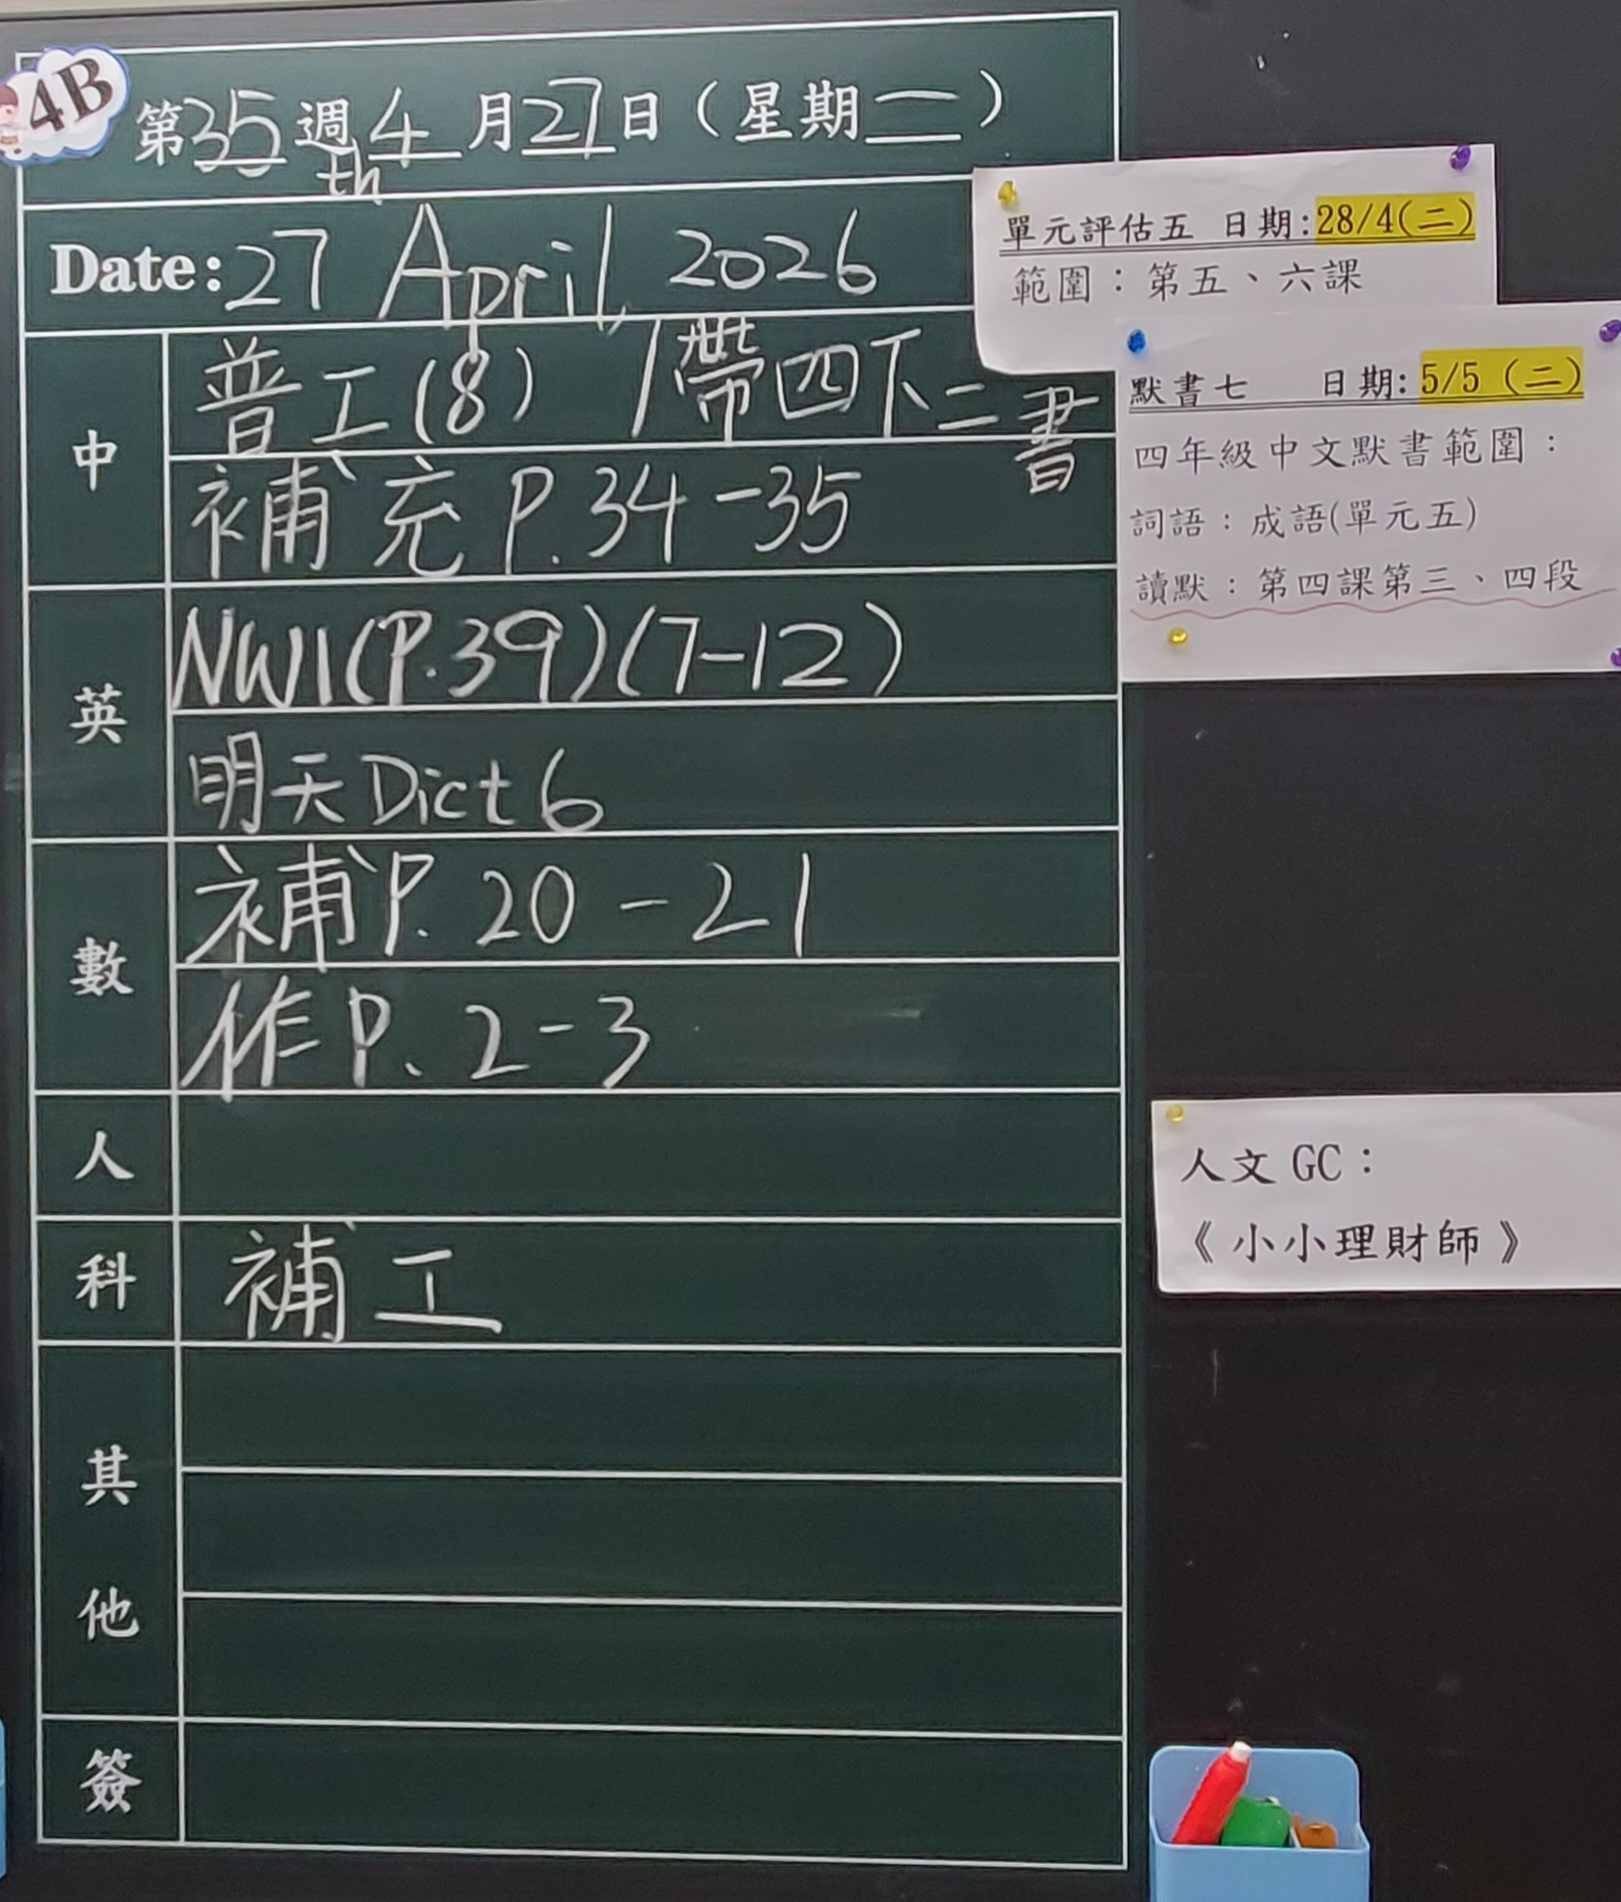 4B
第35週4月27日（星期一）
th
Date:27 April, 2026
中
普工(8) / 帶四下二書
補充 P.34-35
英
NW1(P.39)(7-12)
明天Dict 6
數
補P. 20-21
作P. 2-3
人
科
補工
其他
簽
單元評估五 日期:28/4(二)
範圍：第五、六課
默書七 日期:5/5（二）
四年級中文默書範圍：
詞語：成語(單元五)
讀默：第四課第三、四段
人文 GC：
《小小理財師》